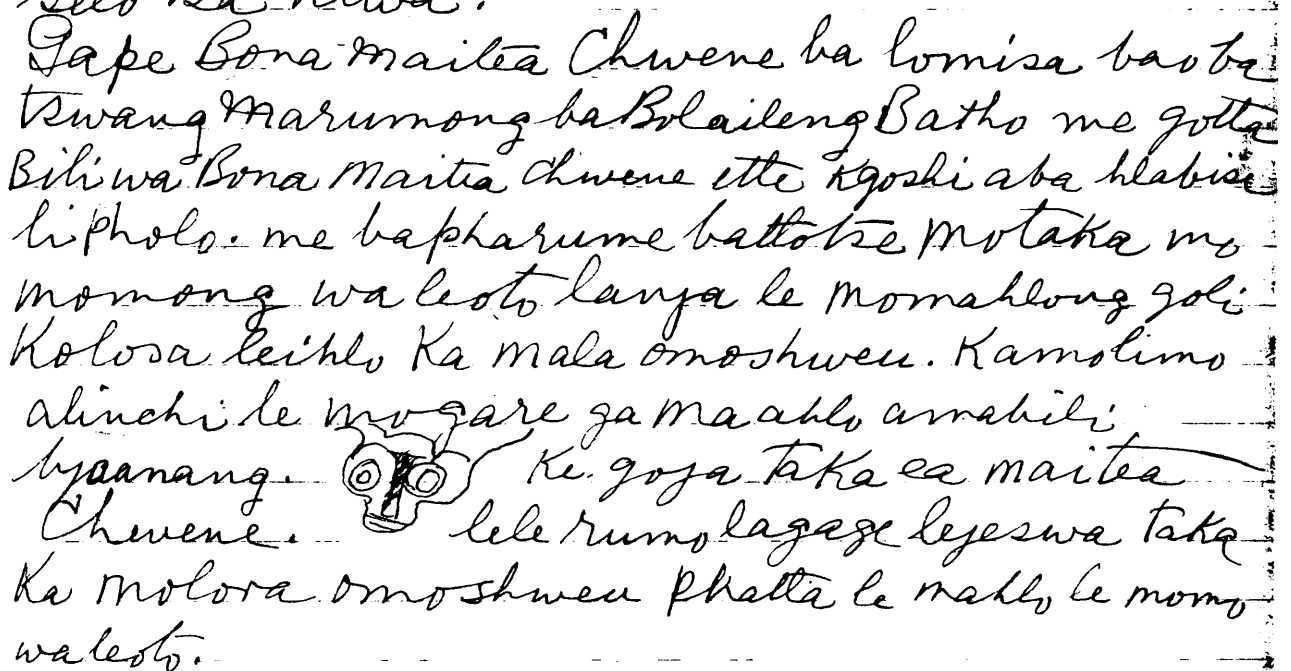 Gape Bona Maitea Chwene ba lomisa bao ba
tswang Marumong ba Bolaileng Batho me gotta
Biliwa Bona Maitea chwene itte kgoshi aba hlabise
lipholo. me bapharume battotse Motaka mo
momong wa leoto lanya le Momahlong goli
Kolosa leihlo Ka mala omoshweu. Kamolimo
alinchi le mogare ga Maahlo amabili
byaanang. Ke goja Taka ea Maitea
Chwene. lele rumo lagage lejeswa Taka
Ka Molora omoshweu Phatta le mahlo le momo
wa leoto.